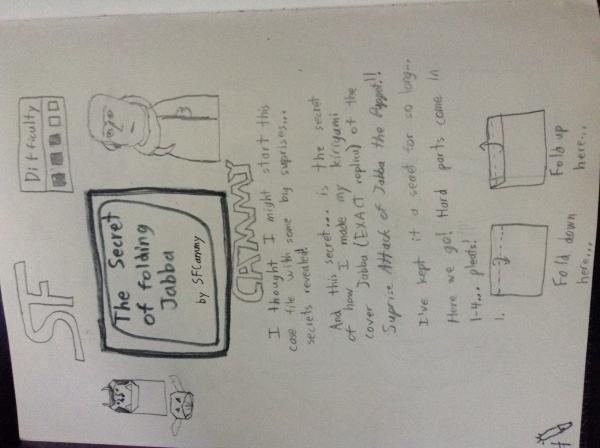 SF
Difficulty
The Secret
of folding
Jabba
by SFCammy
CAMMY
I thought I might start this
case file with some by suprises...
secrets revealed!
And this secret... is the secret
of how I make my kirigami
cover Jabba (EXACT replica) of the
Suprise Attack of Jabba the Puppet!!
I've kept it a secret for so long...
Here we go! Hard parts come in
1-4... pleats!
1.
Fold down
here...
Fold up
here...